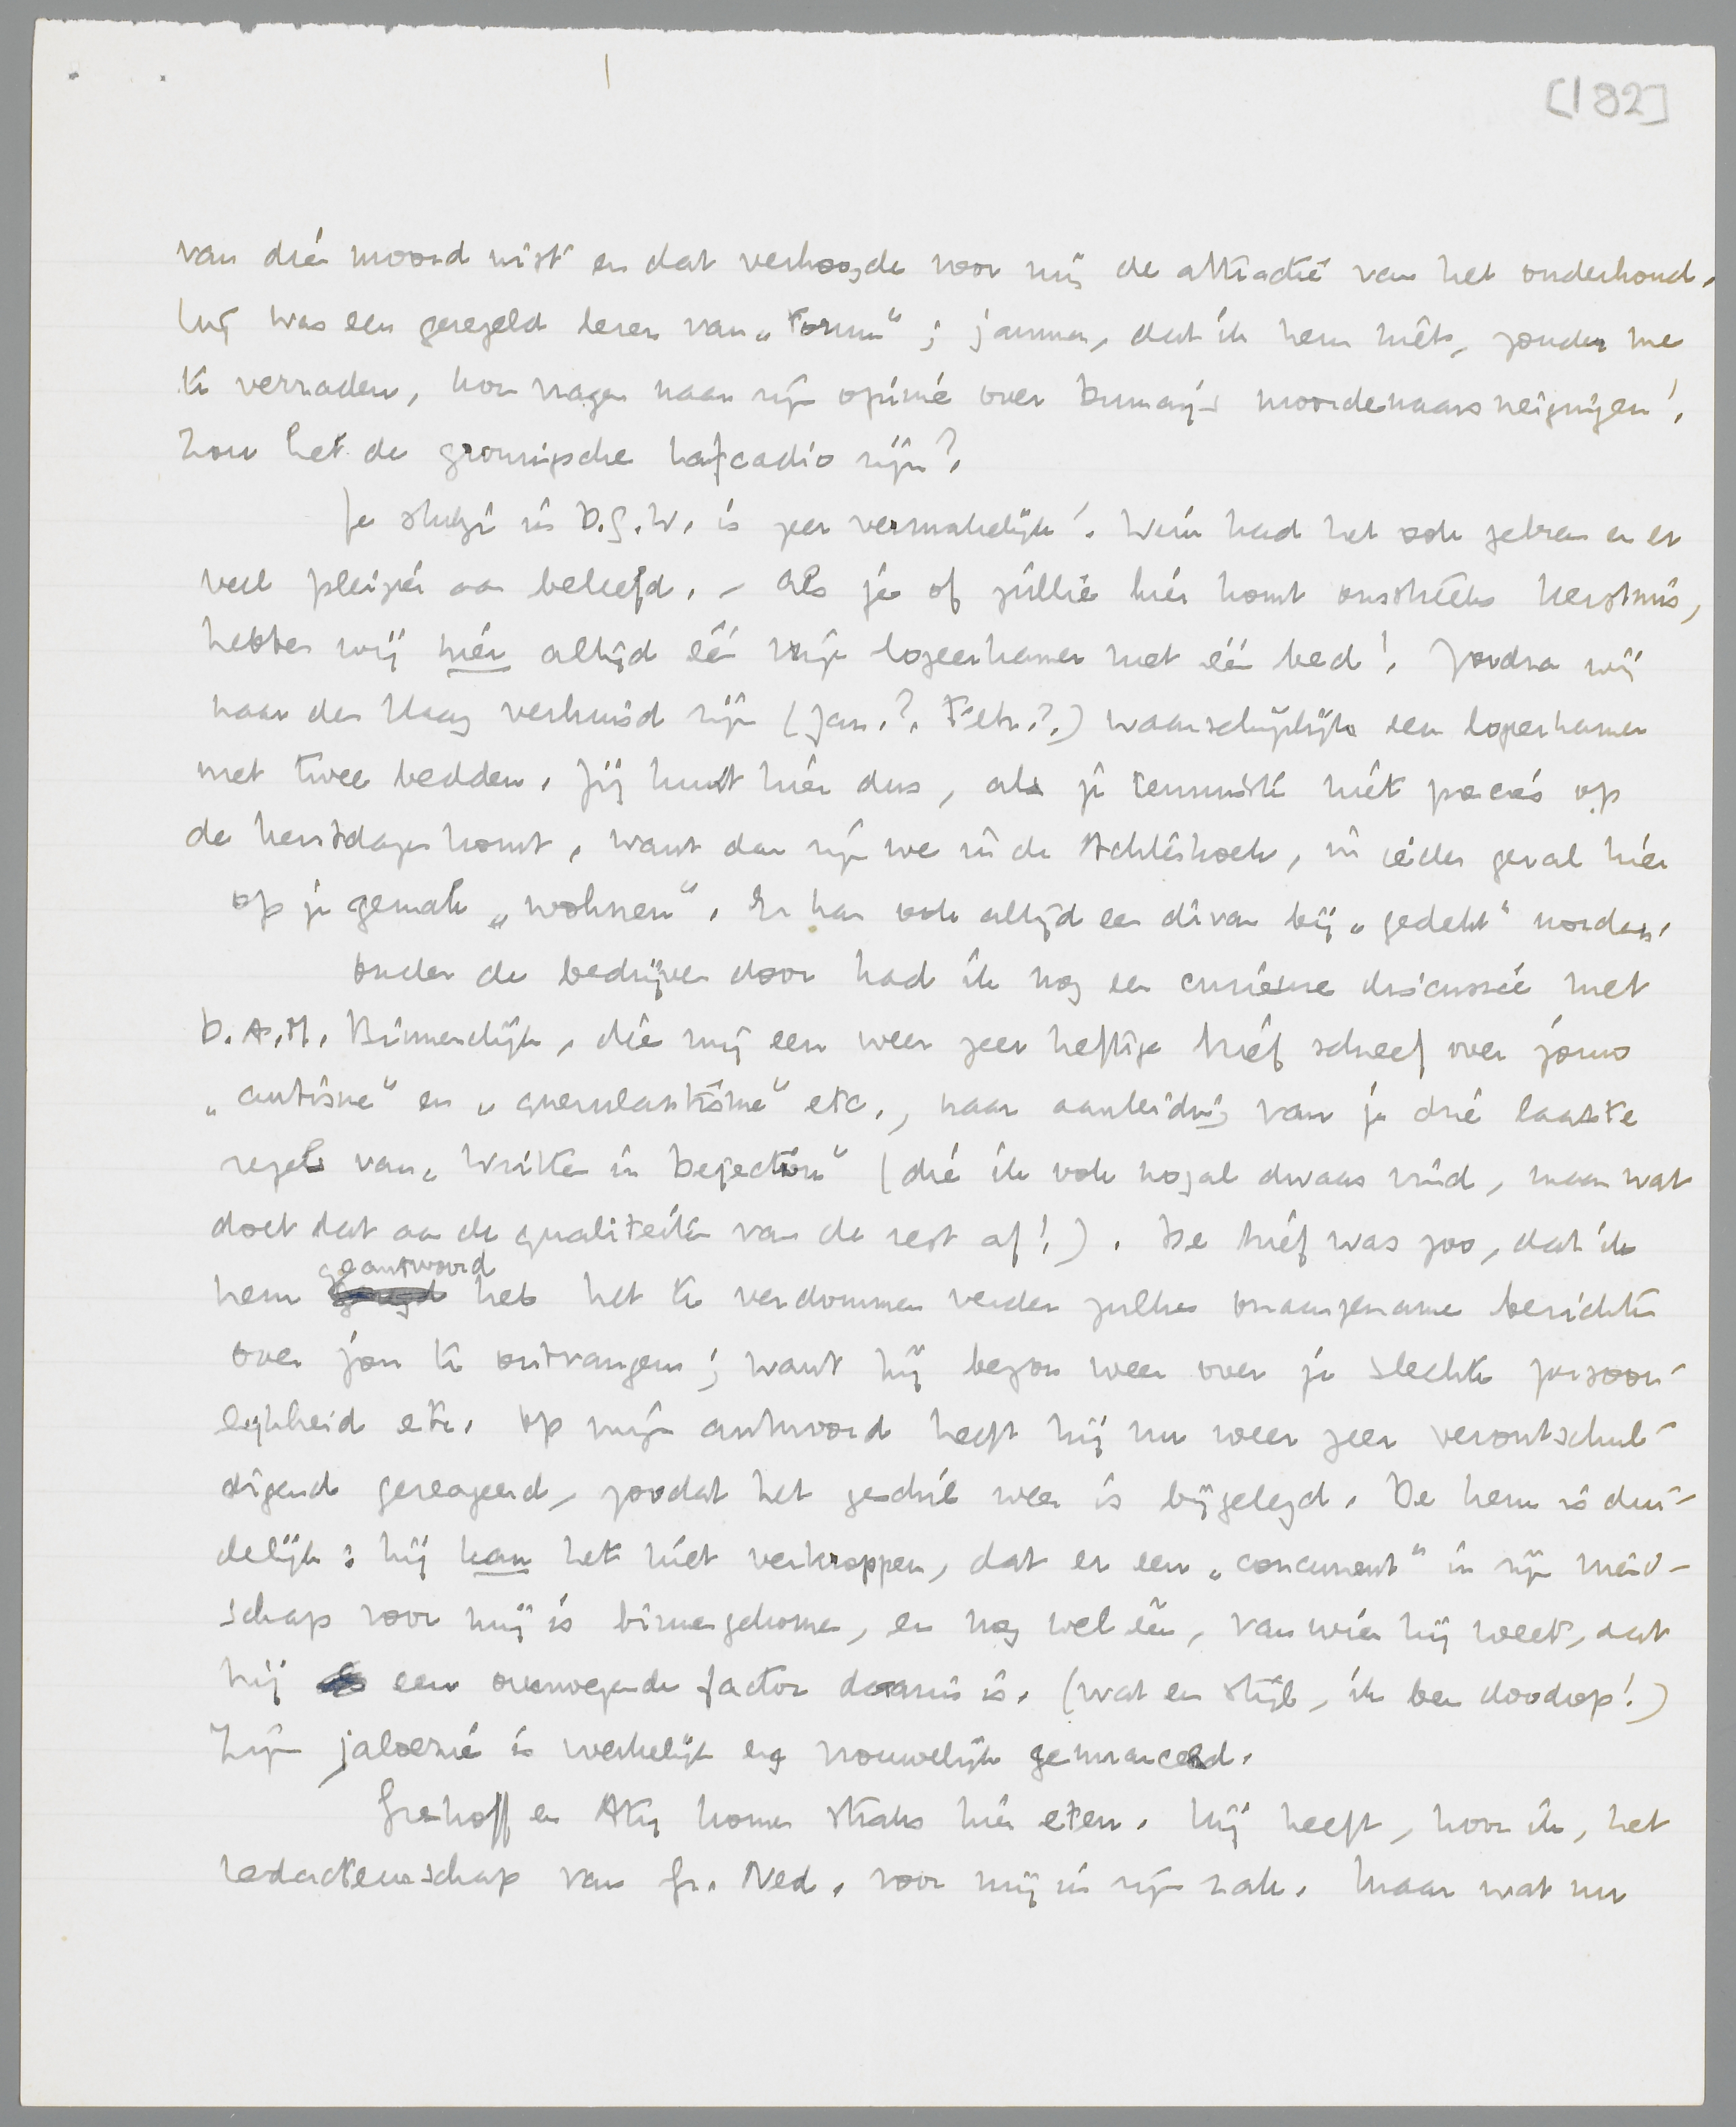 [182]
van dien moord wist en dat verhoogde voor mij de attractie van het onderhoud.
Hij was een geregeld lezer van „Forum"; jammer, dat ik hem niet, zonder me
te verraden, kon vragen naar zijn opinie over Dumay's moordenaarsneigingen!
Zou het de groningsche Lafcadio zijn?
Je stukje in D.G.W. is zeer vermakelijk! Wim had het ook gelezen en er
veel pleizier aan beleefd. – Als je of jullie hier komt omstreeks Kerstmis,
hebben wij hier altijd één vrije logeerkamer met één bed! Zoodra wij
naar den Haag verhuisd zijn (Jan.? Febr.?) waarschijnlijk een logeerkamer
met twee bedden. Jij kunt hier dus, als je tenminste niet precies op
de kerstdagen komt, want dan zijn we in de Achterhoek, in ieder geval hier
op je gemak „wohnen". Er kan ook altijd een divan bij „gedekt" worden.
Onder de bedrijven door had ik nog een curieuse discussie met
D.A.M. Binnendijk, die mij een weer zeer heftige brief schreef over jouw
„autisme" en „querulantisme" etc., naar aanleiding van je drie laatste
regels van „Written in Dejection" (die ik ook nogal dwaas vind, maar wat
doet dat aan de qualiteiten van de rest af!). De brief was zoo, dat ik
hem geantwoord heb het te verdommen verder zulke onaangename berichten
over jou te ontvangen; want hij begon weer over je slechte persoon-
lijkheid etc. Op mijn antwoord heeft hij nu weer zeer verontschul-
digend gereageerd, zoodat het geschil weer is bijgelegd. De kern is dui-
delijk: hij kan het niet verkroppen, dat er een „concurrent" in zijn vriend-
schap voor mij is binnengekomen, en nog wel één, van wien hij weet, dat
hij een overwegende factor daarin is. (wat een stijl, ik ben doodop!)
Zijn jaloezie is werkelijk erg vrouwelijk genuanceerd.
Greshoff en Aty komen straks hier eten. Hij heeft, hoor ik, het
redacteurschap van Gr. Ned. voor mij in zijn zak. Maar wat nu